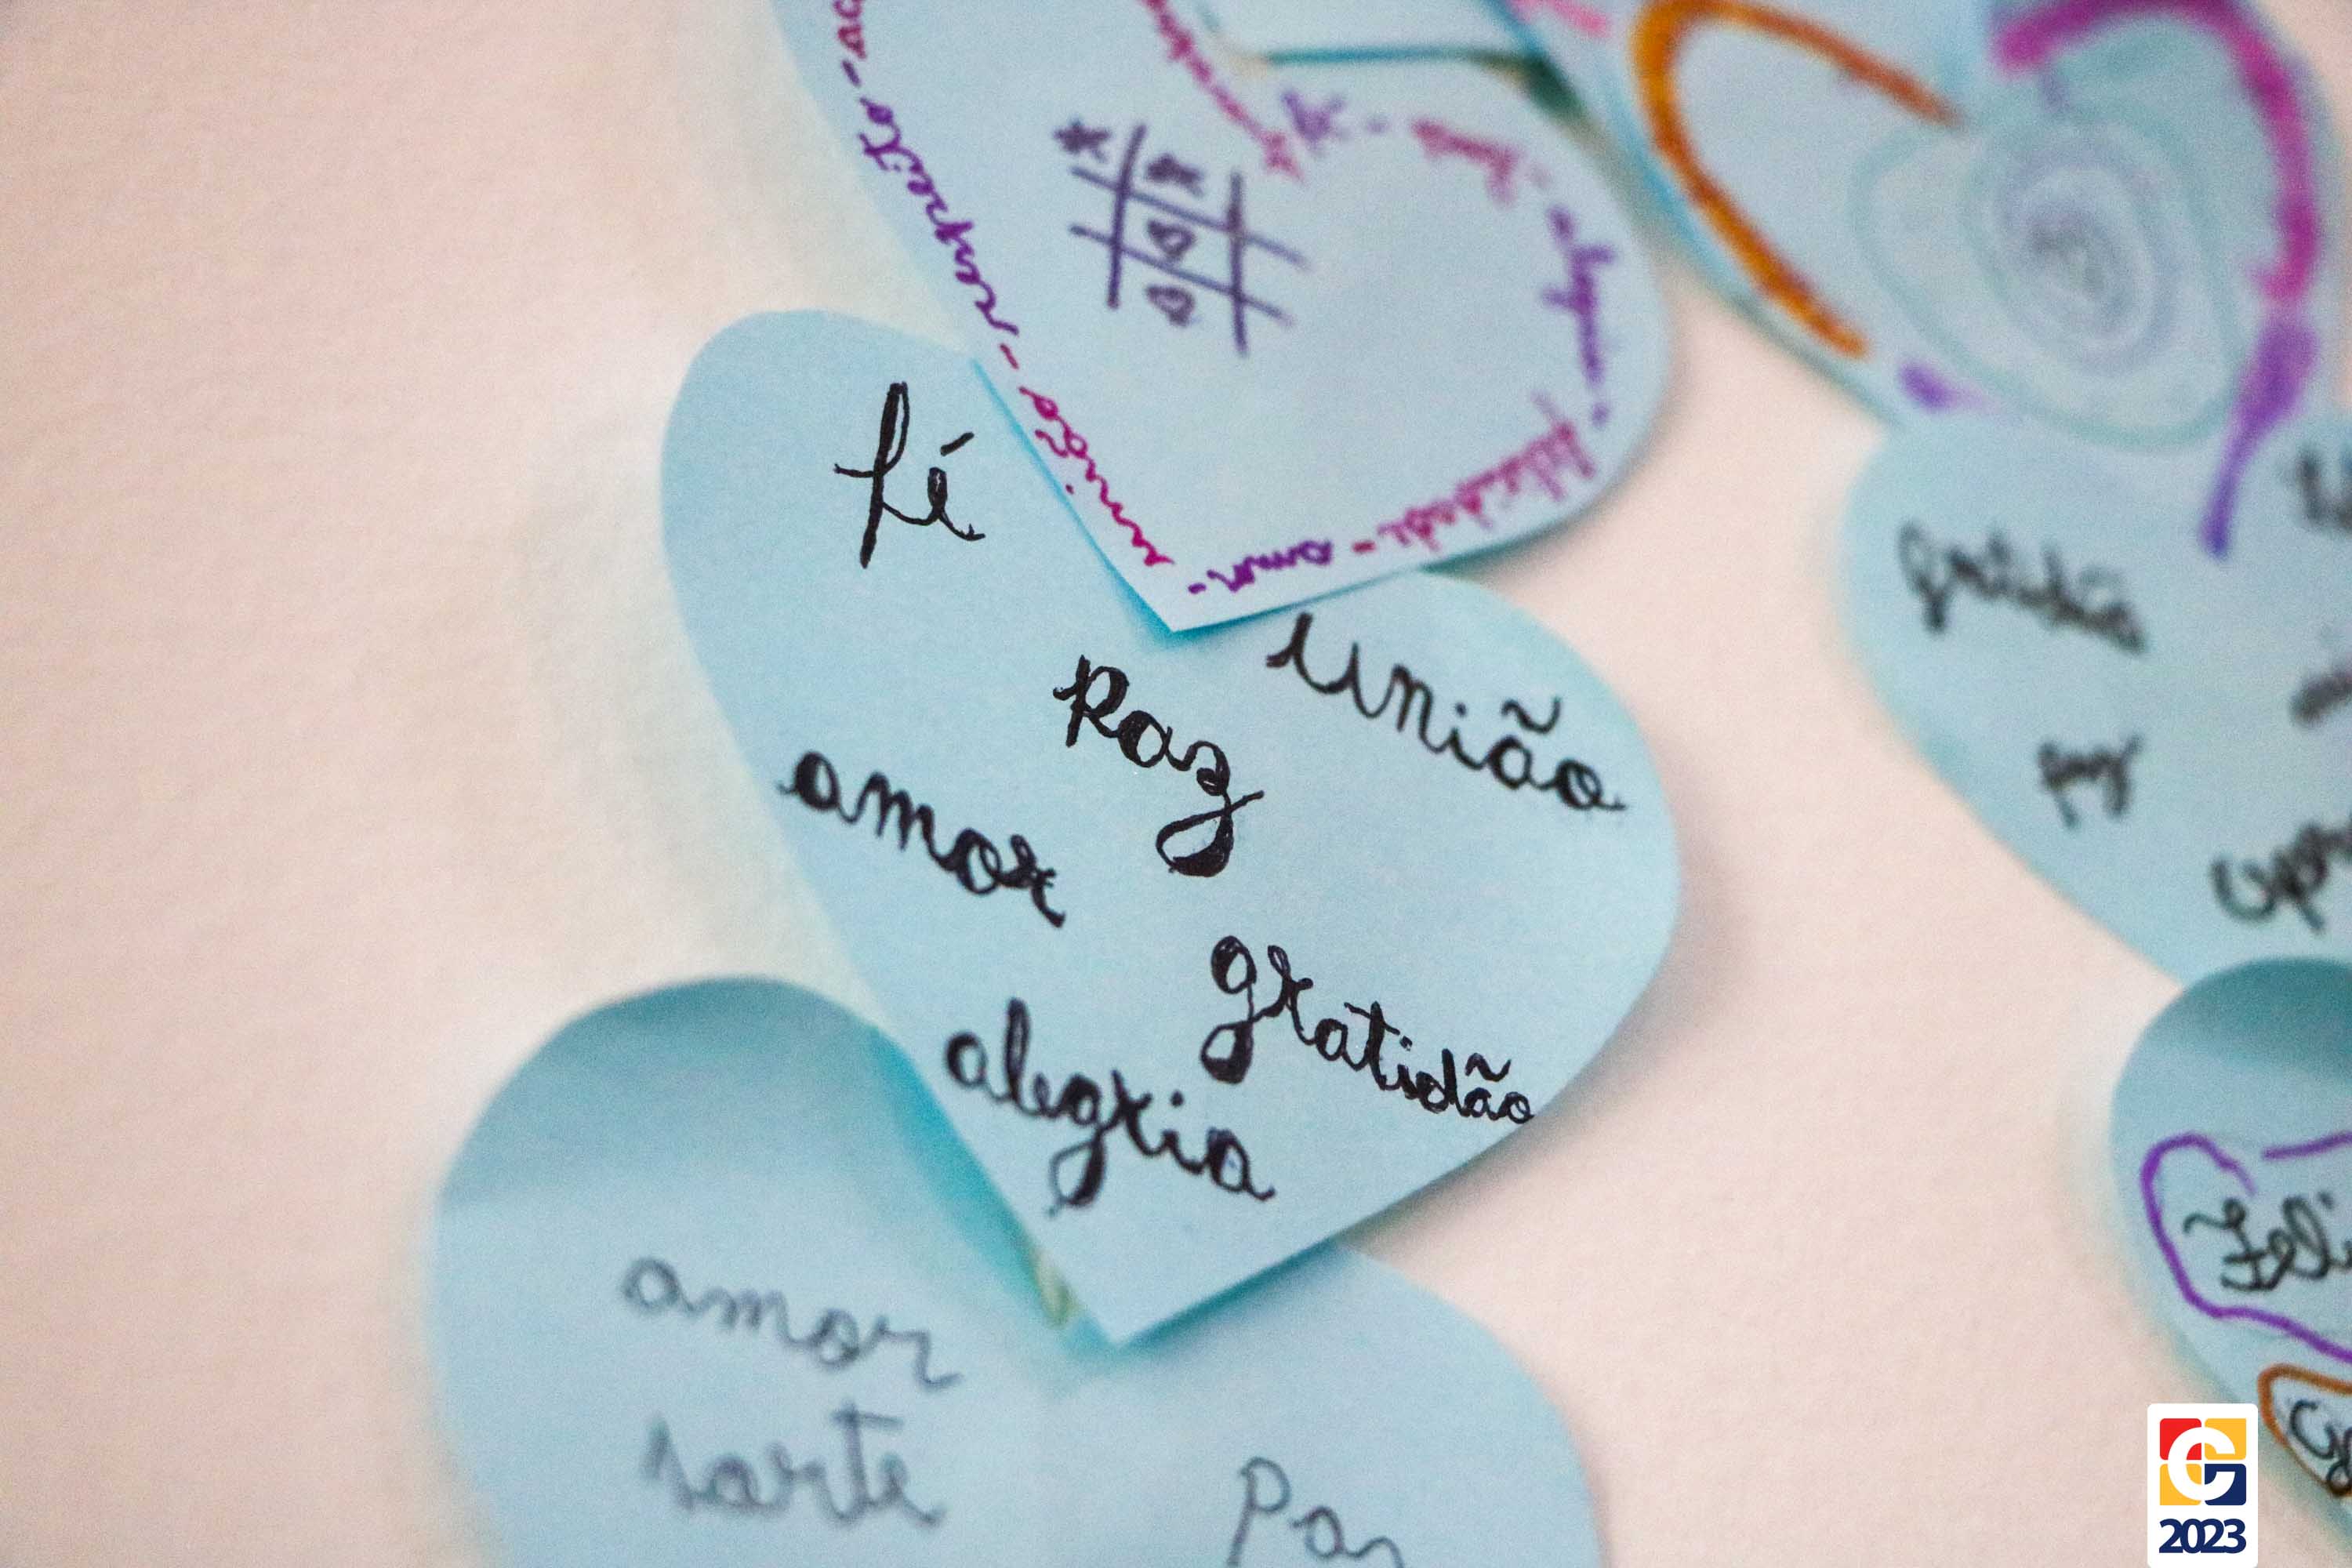 respeito - união
amor - felicidade - alegria -
fé
Paz
união
amor
gratidão
alegria
amor
sorte
Paz
gratidão
paz
Feli
2023